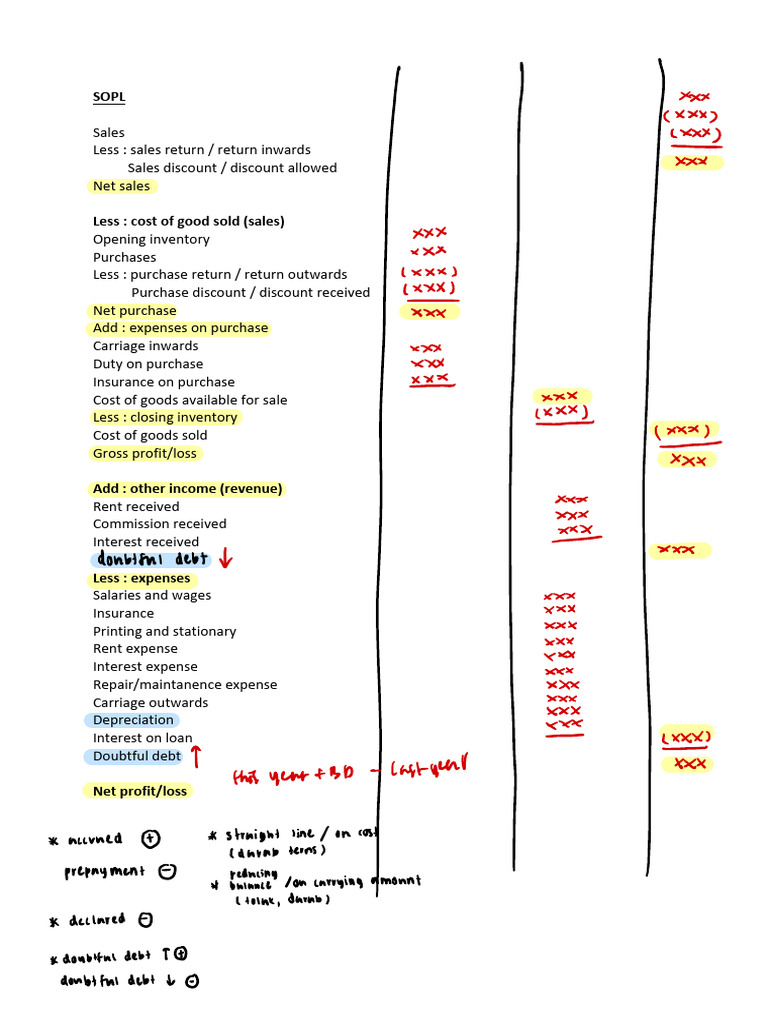 SOPL
xxx
Sales (xxx)
Less : sales return / return inwards (xxx)
Sales discount / discount allowed xxx
Net sales
Less : cost of good sold (sales)
Opening inventory xxx
Purchases xxx
Less : purchase return / return outwards (xxx)
Purchase discount / discount received (xxx)
Net purchase xxx
Add : expenses on purchase
Carriage inwards xxx
Duty on purchase xxx
Insurance on purchase xxx
Cost of goods available for sale xxx
Less : closing inventory (xxx)
Cost of goods sold (xxx)
Gross profit/loss xxx
Add : other income (revenue) xxx
Rent received xxx
Commission received xxx
Interest received xxx
doubtful debt ↓
Less : expenses
Salaries and wages xxx
Insurance xxx
Printing and stationary xxx
Rent expense xxx
Interest expense xxx
Repair/maintanence expense xxx
Carriage outwards xxx
Depreciation xxx
Interest on loan xxx (xxx)
Doubtful debt ↑ xxx xxx
this year + BD - last year
Net profit/loss
* accrued +
prepayment -
* straight line / on cost
(darab terus)
* reducing balance / on carrying amount
(tolak, darab)
* declared -
* doubtful debt ↑ +
doubtful debt ↓ -